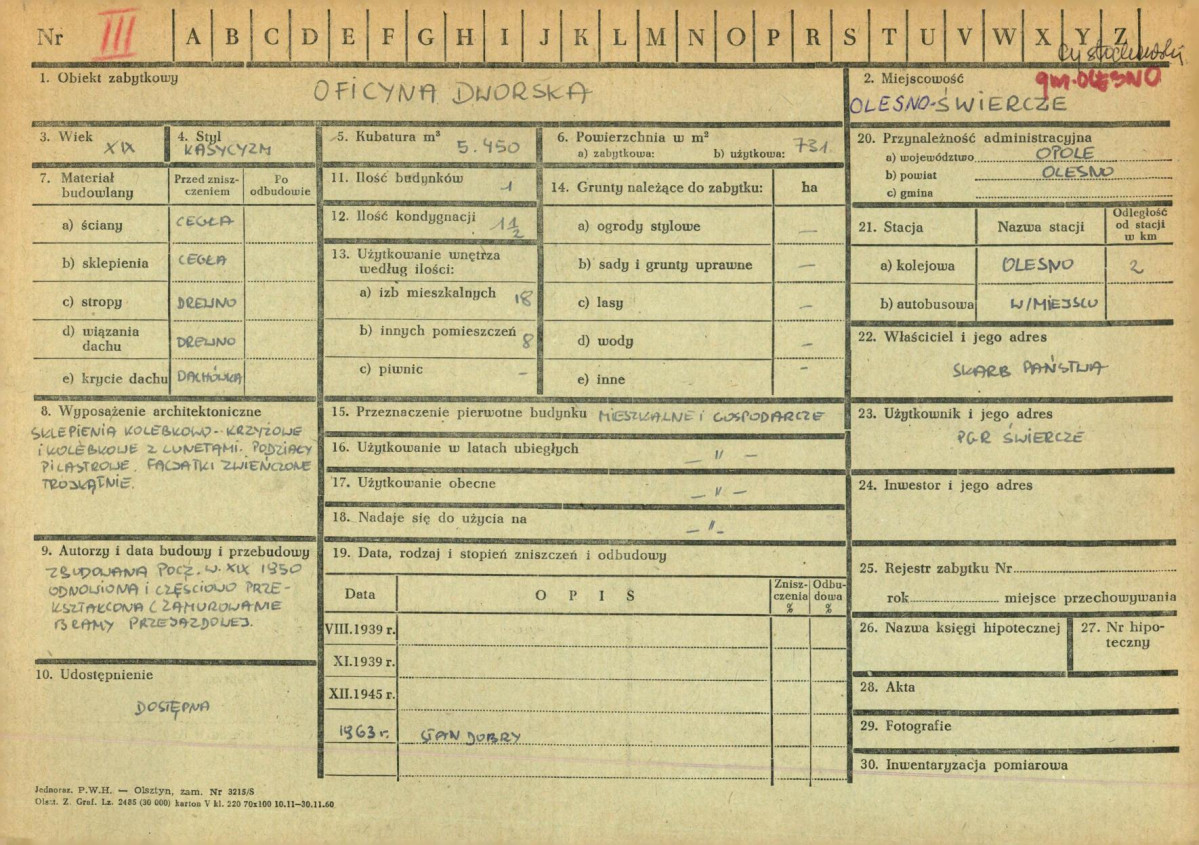 Nr III A B C D E F G H I J K L M N O P R S T U V W X Y Z
1. Obiekt zabytkowy
OFICYNA DWORSKA
2. Miejscowość
gm. OLESNO
OLESNO-ŚWIERCZE
3. Wiek
XIX
4. Styl
KASYCYZM
5. Kubatura m³
5.450
6. Powierzchnia w m²
a) zabytkowa: b) użytkowa: 731
7. Materiał budowlany
Przed zniszczeniem
Po odbudowie
a) ściany CEGŁA
b) sklepienia CEGŁA
c) stropy DREWNO
d) wiązania dachu DREWNO
e) krycie dachu DACHÓWKA
8. Wyposażenie architektoniczne
SKLEPIENIA KOLEBKOWO-KRZYŻOWE
I KOLEBKOWE Z LUNETAMI. PODZIAŁY
PILASTROWE. FACJATKI ZWIEŃCZONE
TRÓJKĄTNIE.
9. Autorzy i data budowy i przebudowy
ZBUDOWANA POCZ. W. XIX 1950
ODNOWIONA I CZĘŚCIOWO PRZE-
KSZTAŁCONA (ZAMUROWANIE
BRAMY PRZEJAZDOWEJ.
10. Udostępnienie
DOSTĘPNA
11. Ilość budynków 1
12. Ilość kondygnacji 1 1/2
13. Użytkowanie wnętrza
według ilości:
a) izb mieszkalnych 18
b) innych pomieszczeń 8
c) piwnic –
14. Grunty należące do zabytku: ha
a) ogrody stylowe —
b) sady i grunty uprawne —
c) lasy –
d) wody –
e) inne –
15. Przeznaczenie pierwotne budynku MIESZKALNE I GOSPODARCZE
16. Użytkowanie w latach ubiegłych – " –
17. Użytkowanie obecne – " –
18. Nadaje się do użycia na – " –
19. Data, rodzaj i stopień zniszczeń i odbudowy
Data
O P I S
Zniszczenia %
Odbudowa %
VIII.1939 r.
XI.1939 r.
XII.1945 r.
1963 r. STAN DOBRY
20. Przynależność administracyjna
a) województwo OPOLE
b) powiat OLESNO
c) gmina
21. Stacja
Nazwa stacji
Odległość od stacji w km
a) kolejowa OLESNO 2
b) autobusowa W/MIEJSCU
22. Właściciel i jego adres
SKARB PAŃSTWA
23. Użytkownik i jego adres
PGR ŚWIERCZE
24. Inwestor i jego adres
25. Rejestr zabytku Nr
rok miejsce przechowywania
26. Nazwa księgi hipotecznej
27. Nr hipoteczny
28. Akta
29. Fotografie
30. Inwentaryzacja pomiarowa
Jednoraz. P.W.H. — Olsztyn, zam. Nr 3215/S
Olszt. Z. Graf. Lz. 2485 (30 000) karton V kl. 220 70x100 10.11—30.11.60